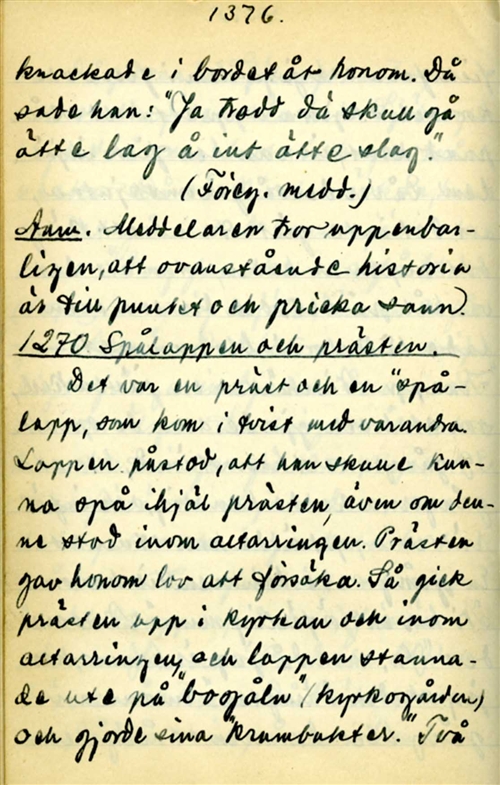 1376.
knackade i bordet åt honom. Då
sade han: "Ja trodd dä skull gå
ätte lag å int ätte slag."
(Föreg. medd.)
Anm. Meddelaren tror uppenbar-
ligen, att ovanstående historia
är till punkt och pricka sann.
1270. Spålappen och prästen.
Det var en präst och en "spå-
lapp, som kom i tvist med varandra.
Lappen påstod, att han skulle kun-
na spå ihjäl prästen, även om den-
ne stod inom altarringen. Prästen
gav honom lov att försöka. Så gick
prästen upp i kyrkan och inom
altarringen, och lappen stanna-
de ute på "bogåln" (kyrkogården)
och gjorde sina "krumbukter." Två